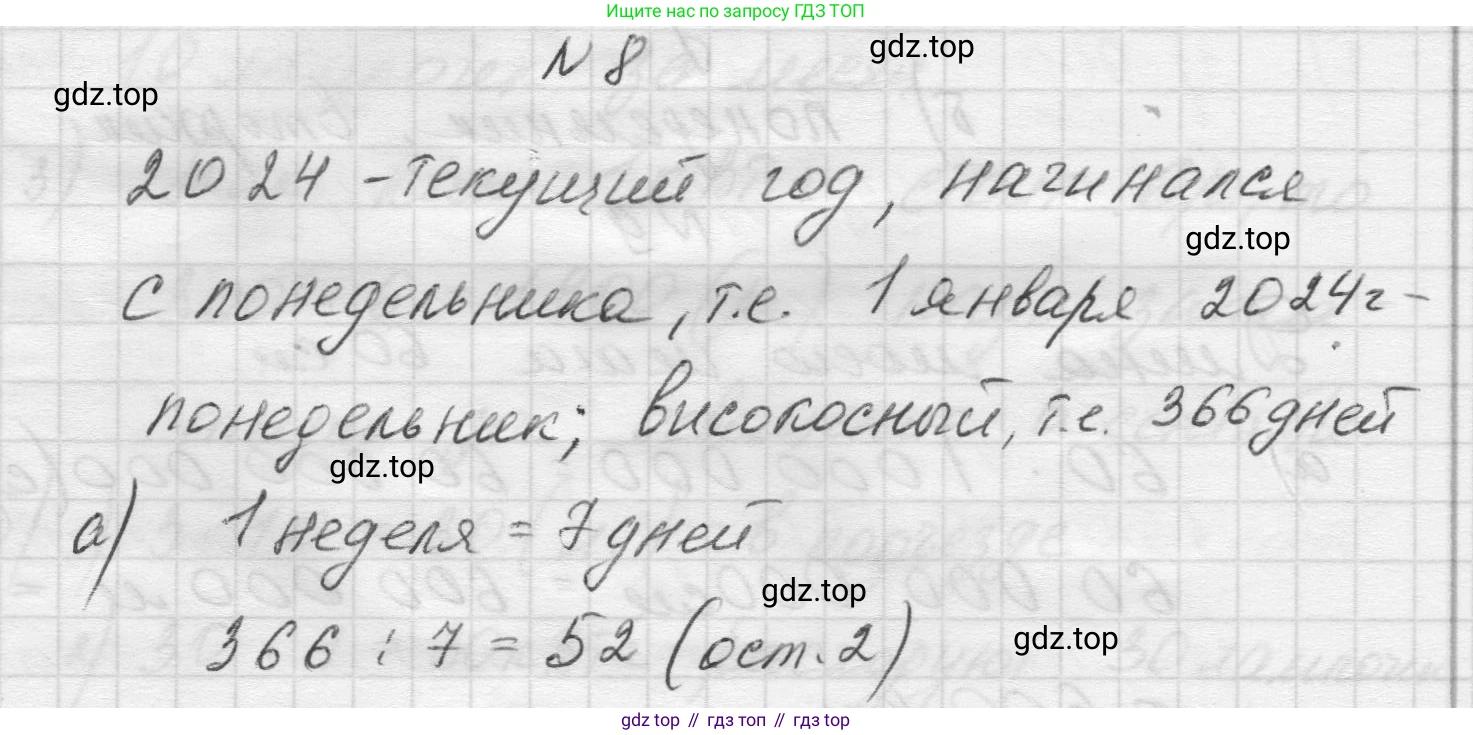 Ищите нас по запросу ГДЗ ТОП
N 8
gdz.top
gdz.top
2024 - текущий год, начинался
gdz.top
с понедельника, т.е. 1 января 2024г -
понедельник; високосный, т.е. 366 дней
gdz.top
а) 1 неделя = 7 дней
gdz.top
366 : 7 = 52 (ост. 2)
gdz.top
gdz top // гдз топ // gdz top